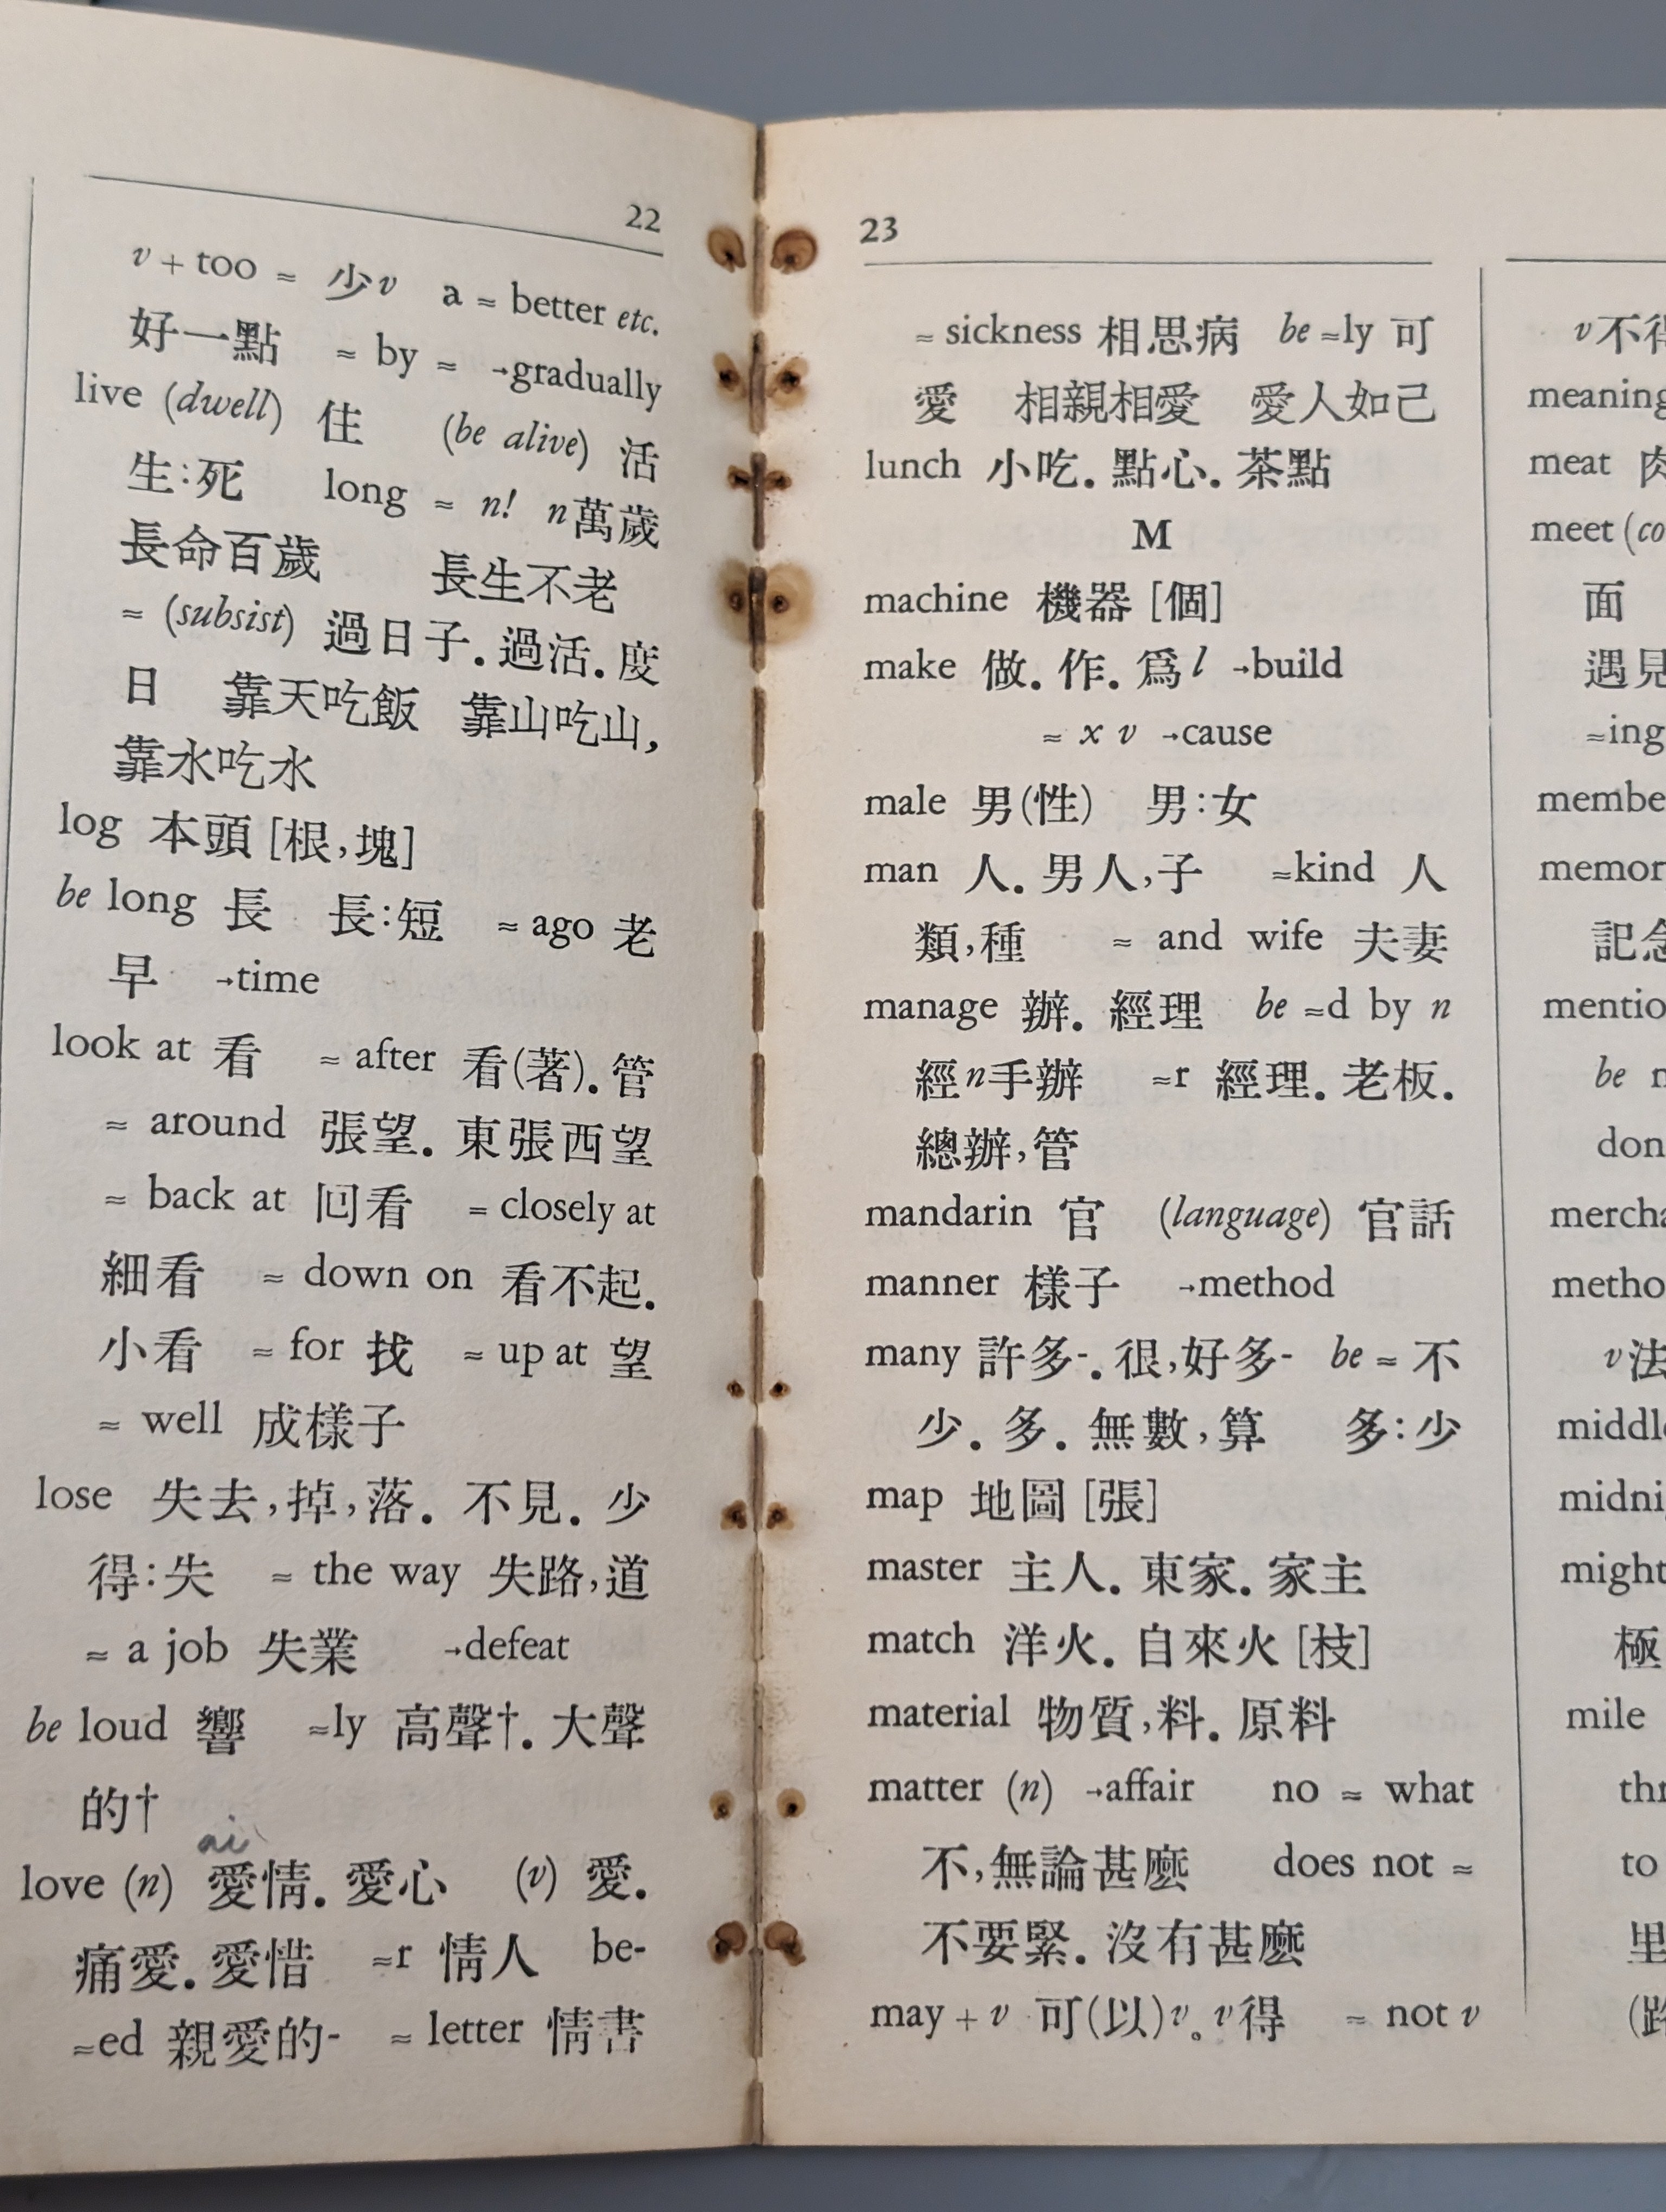 22
v + too ≈ 少v a ≈ better etc.
好一點 ≈ by ≈ →gradually
live (dwell) 住 (be alive) 活
生:死 long ≈ n! n萬歲
長命百歲 長生不老
≈ (subsist) 過日子. 過活. 度
日 靠天吃飯 靠山吃山,
靠水吃水
log 本頭 [根,塊]
be long 長 長:短 ≈ ago 老
早 →time
look at 看 ≈ after 看(著). 管
≈ around 張望. 東張西望
≈ back at 回看 ≈ closely at
細看 ≈ down on 看不起.
小看 ≈ for 找 ≈ up at 望
≈ well 成樣子
lose 失去,掉,落. 不見. 少
得:失 ≈ the way 失路,道
≈ a job 失業 →defeat
be loud 響 ≈ly 高聲†. 大聲
的†
ai
love (n) 愛情. 愛心 (v) 愛.
痛愛. 愛惜 ≈r 情人 be-
≈ed 親愛的- ≈ letter 情書
23
≈ sickness 相思病 be ≈ly 可
愛 相親相愛 愛人如己
lunch 小吃. 點心. 茶點
M
machine 機器 [個]
make 做. 作. 爲l →build
≈ x v →cause
male 男(性) 男:女
man 人. 男人,子 ≈kind 人
類,種 ≈ and wife 夫妻
manage 辦. 經理 be ≈d by n
經n手辦 ≈r 經理. 老板.
總辦,管
mandarin 官 (language) 官話
manner 樣子 →method
many 許多-. 很,好多- be ≈ 不
少. 多. 無數,算 多:少
map 地圖 [張]
master 主人. 東家. 家主
match 洋火. 自來火 [枝]
material 物質,料. 原料
matter (n) →affair no ≈ what
不,無論甚麼 does not ≈
不要緊. 沒有甚麼
may + v 可(以)v。v得 ≈ not v
v不得
meaning
meat 肉
meet (co
面
遇見
≈ing
membe
memor
記念
mentio
be n
don
mercha
metho
v法
middle
midni
might
極
mile
thr
to
里
(路